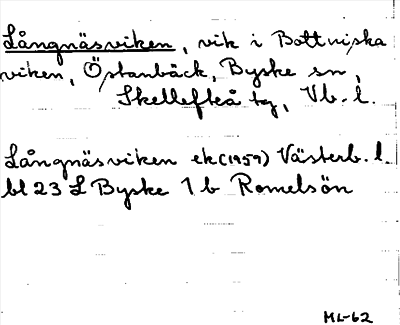 Långnäsviken, vik i Bottniska
viken, Östanbäck, Byske sn,
Skellefteå tg, Vb. l.
Långnäsviken ek (1959) Västerb. l.
bl 23 L Byske 1 b Romelsön
ML-62